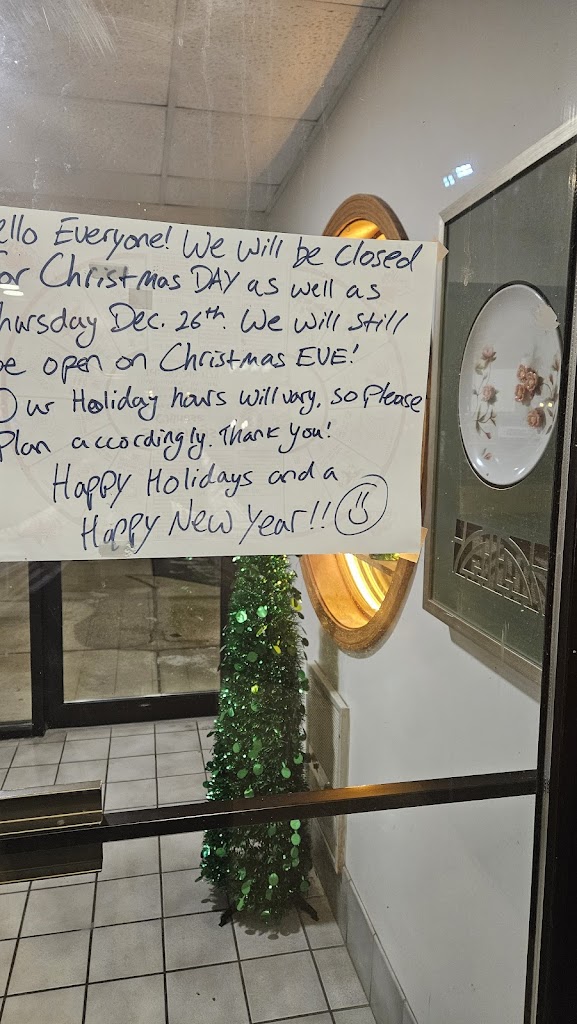 ello Everyone! We will be closed
For Christmas DAY as well as
hursday Dec. 26th. We will still
be open on Christmas EVE!
Our Holiday hours will vary, so Please
Plan accordingly. Thank you!
Happy Holidays and a
Happy New Year!!